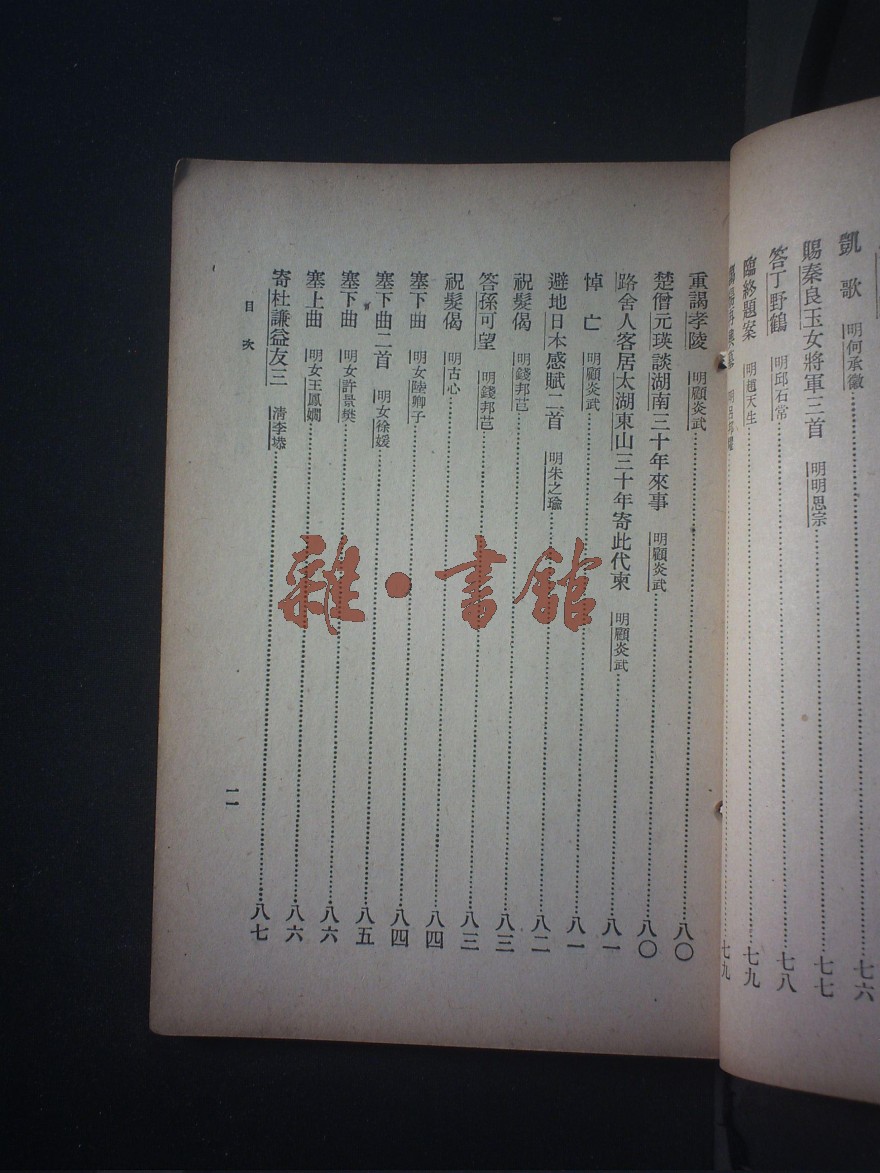 凱歌 明何承徽 七六
賜秦良玉女將軍三首 明明思宗 七七
答丁野鶴 明邱石常 七八
臨終題案 明趙天生 七九
七九
重謁孝陵 明顧炎武 八〇
楚僧元瑛談湖南三十年來事 明顧炎武 八〇
路舍人客居太湖東山三十年寄此代柬 明顧炎武 八一
悼亡 明顧炎武 八一
避地日本感賦二首 明朱之瑜 八二
祝髮偈 明錢邦芑 八三
答孫可望 明錢邦芑 八三
祝髮偈 明古心 八四
塞下曲 明女陸卿子 八四
塞下曲二首 明女徐媛 八五
塞下曲 明女許景樊 八六
塞上曲 明女王鳳嫻 八六
寄杜謙益友三 清李塨 八七
目次
一一
雜·書館